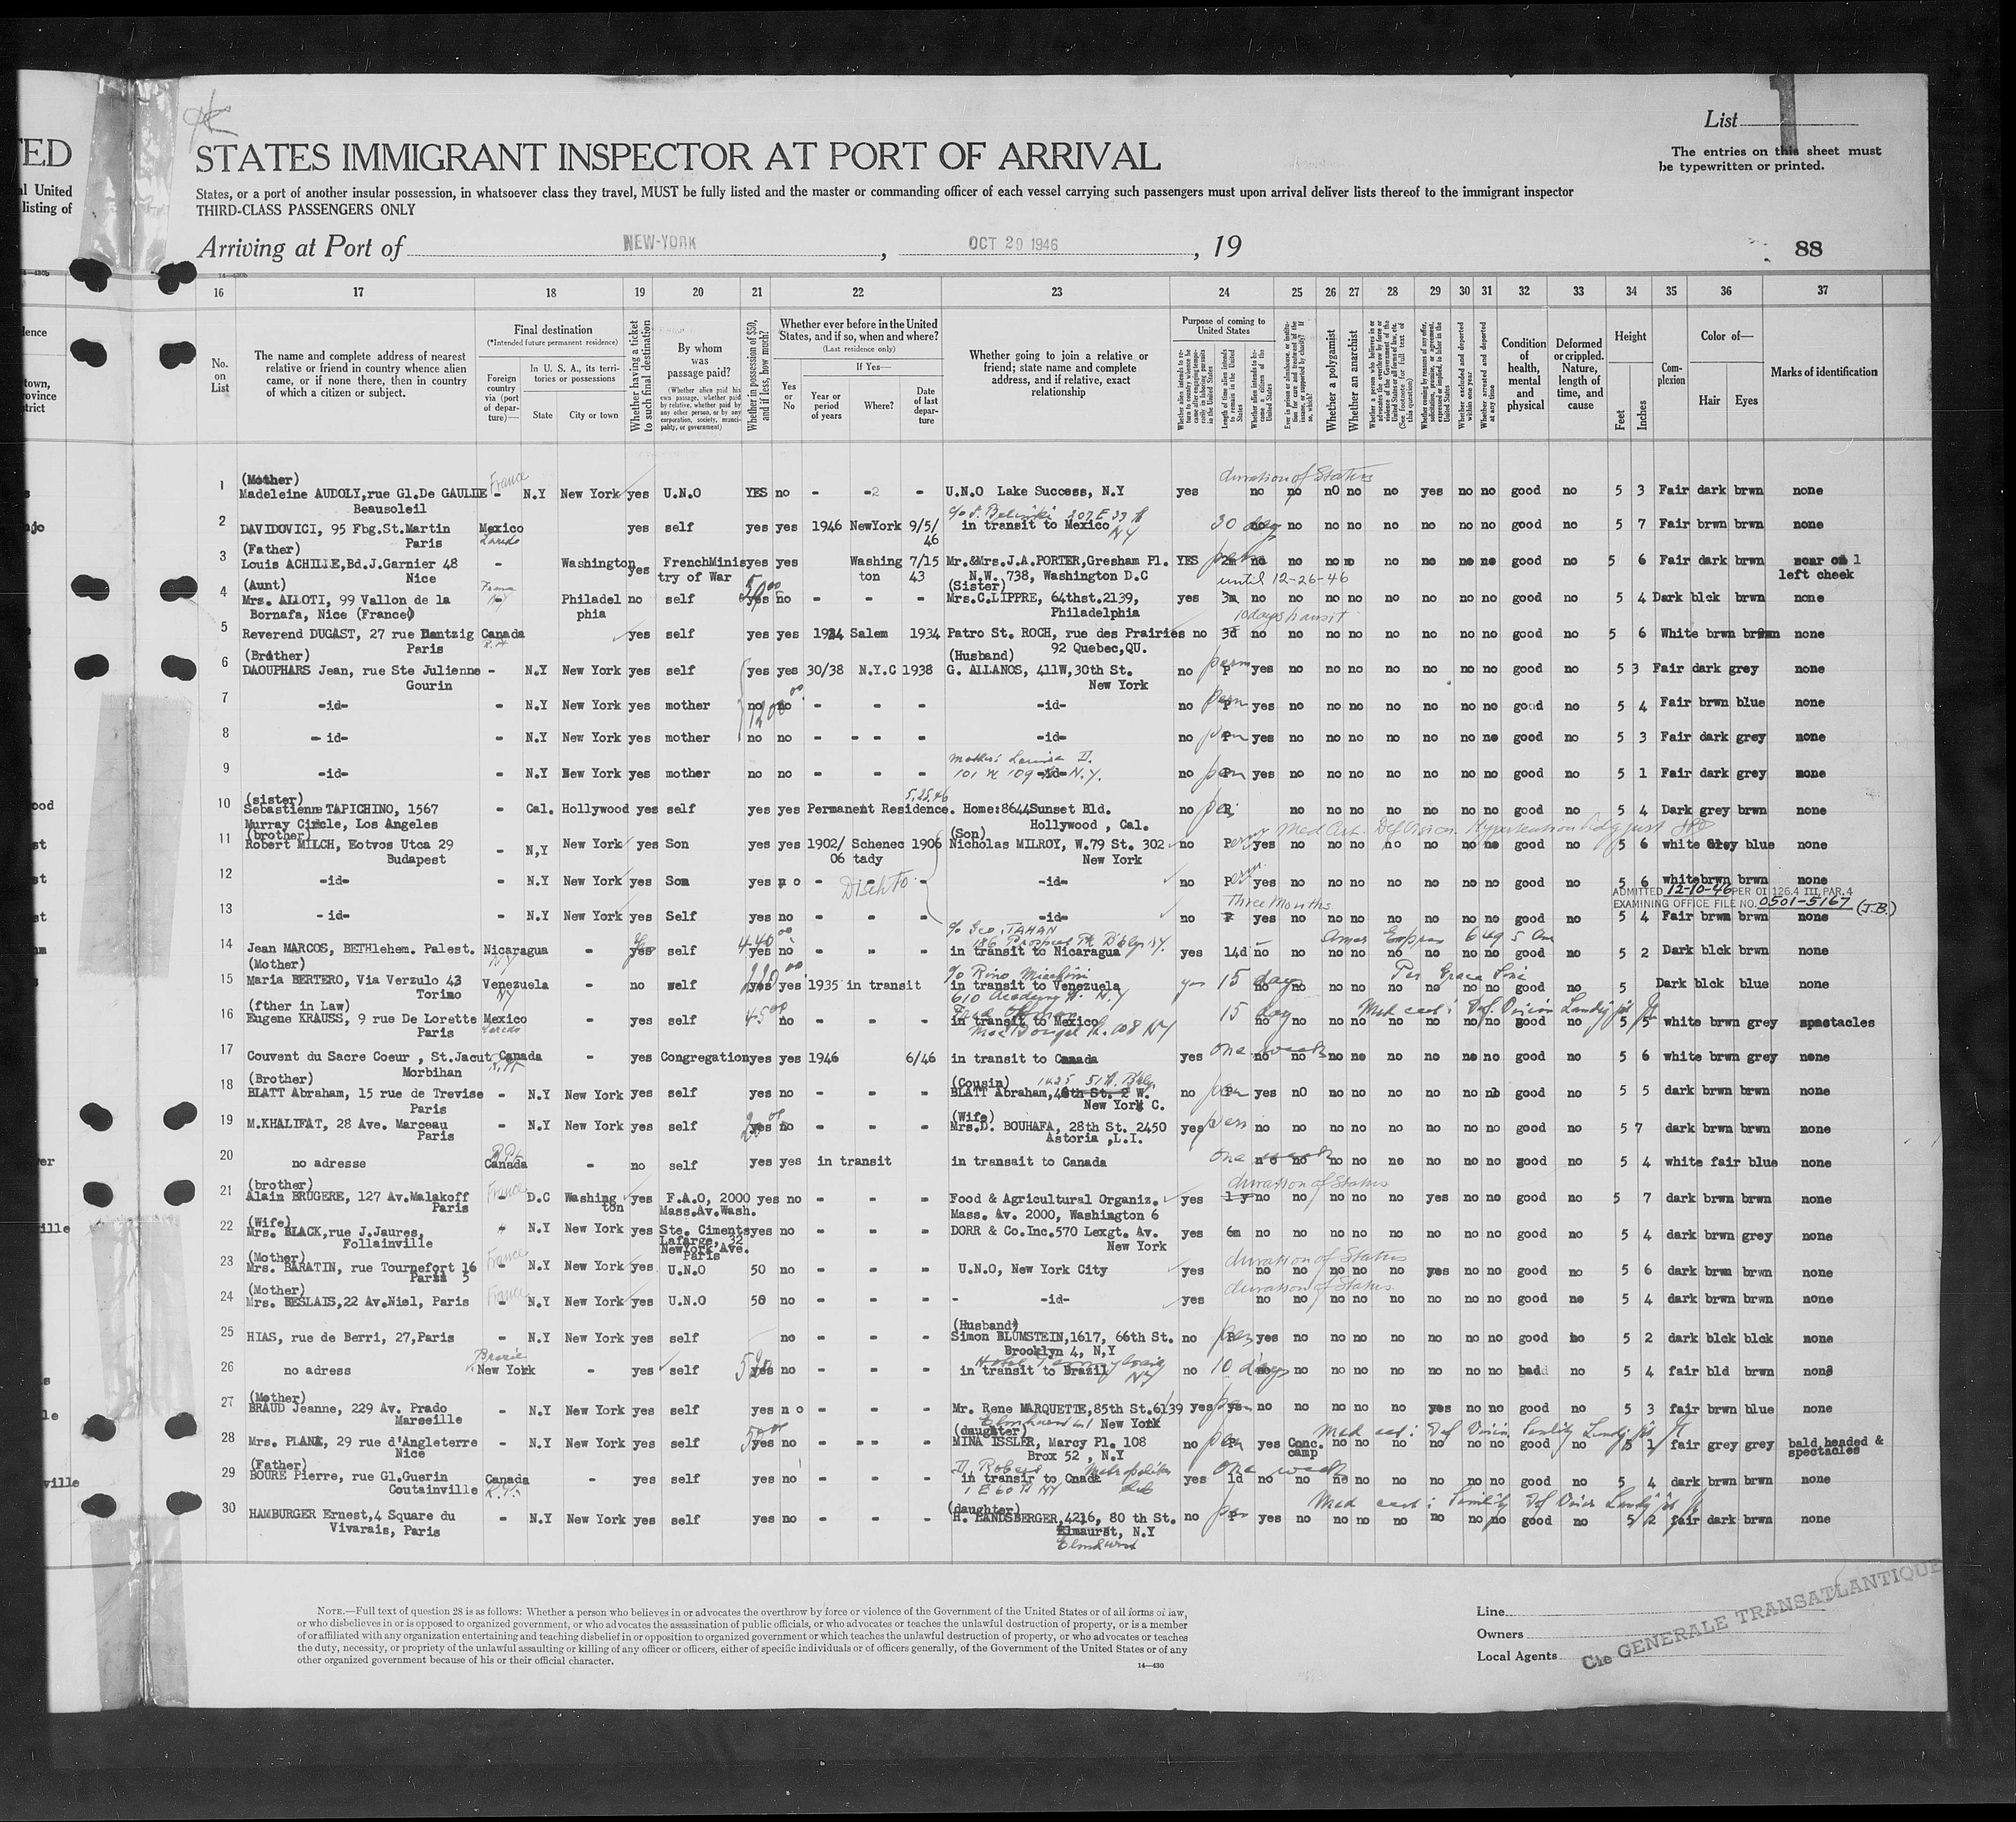 List 1
STATES IMMIGRANT INSPECTOR AT PORT OF ARRIVAL
The entries on this sheet must
be typewritten or printed.
States, or a port of another insular possession, in whatsoever class they travel, MUST be fully listed and the master or commanding officer of each vessel carrying such passengers must upon arrival deliver lists thereof to the immigrant inspector
THIRD-CLASS PASSENGERS ONLY
Arriving at Port of NEW-YORK, OCT 29 1946, 19
88
16 17 18 19 20 21 22 23 24 25 26 27 28 29 30 31 32 33 34 35 36 37
No. on List
The name and complete address of nearest relative or friend in country whence alien came, or if none there, then in country of which a citizen or subject.
Final destination
(*Intended future permanent residence)
Foreign country via (port of departure)—
In U. S. A., its territories or possessions
State City or town
Whether having a ticket to such final destination
By whom was passage paid?
(Whether alien paid his own passage, whether paid by relative, whether paid by any other person, or by any corporation, society, municipality, or government)
Whether in possession of $50, and if less, how much?
Whether ever before in the United States, and if so, when and where?
(Last residence only)
Yes or No
If Yes—
Year or period of years Where? Date of last departure
Whether going to join a relative or friend; state name and complete address, and if relative, exact relationship
Purpose of coming to United States
Whether a polygamist
Whether an anarchist
Condition of health, mental and physical
Deformed or crippled. Nature, length of time, and cause
Height
Feet Inches
Complexion
Color of—
Hair Eyes
Marks of identification
duration of Status
1 (Mother) Madeleine AUDOLY,rue Gl.De GAULLE Beausoleil France - N.Y New York yes U.N.O YES no - - - U.N.O Lake Success, N.Y yes no no nO no no yes no no good no 5 3 Fair dark brwn none
2 DAVIDOVICI, 95 Fbg.St.Martin Paris Mexico Laredo yes self yes yes 1946 NewYork 9/5/46 in transit to Mexico 30 days no no no no no no no no good no 5 7 Fair brwn brwn none
3 (Father) Louis ACHILLE,Bd.J.Garnier 48 Nice - Washington yes FrenchMinistry of War yes yes Washington 7/15 43 Mr.&Mrs.J.A.PORTER,Gresham Pl. N.W. 738, Washington D.C YES no no no no no no no no good no 5 6 Fair dark brwn scar on l left cheek
until 12-26-46
4 (Aunt) Mrs. ALLOTI, 99 Vallon de la Bornafa, Nice (France) Philadelphia no self yes no - - - (Sister) Mrs.C.LIPPRE, 64thst.2139, Philadelphia yes 3m no no no no no no no no good no 5 4 Dark blck brwn none
10 days transit
5 Reverend DUGAST, 27 rue Dantzig Paris Canada yes self yes yes 1934 Salem 1934 Patro St. ROCH, rue des Prairies 92 Quebec,QU. no 3d no no no no no no no no good no 5 6 White brwn brwn none
6 (Brother) DAOUPHARS Jean, rue Ste Julienne Gourin - N.Y New York yes self yes yes 30/38 N.Y.C 1938 (Husband) G. ALLANOS, 411W,30th St. New York no perm yes no no no no no no no good no 5 3 Fair dark grey none
7 -id- - N.Y New York yes mother no no - - - -id- no perm yes no no no no no no no good no 5 4 Fair brwn blue none
8 - id- - N.Y New York yes mother no no - - - -id- no yes no no no no no no no good no 5 3 Fair dark grey none
9 -id- - N.Y New York yes mother no no - - - -id- no yes no no no no no no no good no 5 1 Fair dark grey none
10 (sister) Sebastienne TAPICHINO, 1567 Murray Circle, Los Angeles - Cal. Hollywood yes self yes yes Permanent Residence. Home:8644Sunset Bld. Hollywood , Cal. no no no no no no no no good no 5 4 Dark grey brwn none
11 (brother) Robert MILCH, Eotvos Utca 29 Budapest - N,Y New York yes Son yes yes 1902/06 Schenectady 1906 (Son) Nicholas MILROY, W.79 St. 302 New York no Perm yes no no no no no no no good no 5 6 white Grey blue none
12 -id- - N.Y New York yes Son yes no - - - -id- no Perm yes no no no no no no no good no 5 6 white brwn brwn none
ADMITTED 12-10-46 PER OI 126.4 III, PAR. 4
EXAMINING OFFICE FILE NO. 0501-5167 (J.B.)
Three Months
13 - id- - N.Y New York yes Self yes no - - - -id- no P yes no no no no no no no good no 5 4 Fair brwn brwn none
14 Jean MARCOS, BETHlehem. Palest. Nicaragua - yes self yes no - - - in transit to Nicaragua yes 14d no no no no no no no good no 5 2 Dark blck brwn none
15 (Mother) Maria BERTERO, Via Verzulo 43 Torino Venezuela NY - no self yes yes 1935 in transit in transit to Venezuela yes 15 days no no no no no no no no good no 5 Dark blck blue none
16 (fther in Law) Eugene KRAUSS, 9 rue De Lorette Paris Mexico Laredo - yes self 45 no - - - in transit to Mexico 15 day no no no no no no no no good no 5 5 white brwn grey spectacles
17 Couvent du Sacre Coeur , St.Jacut Morbihan Canada - yes Congregation yes yes 1946 6/46 in transit to Canada yes one week no no no no no no no no good no 5 6 white brwn grey none
18 (Brother) BLATT Abraham, 15 rue de Trevise Paris - N.Y New York yes self yes no - - - (Cousin) BLATT Abraham,48th St. 2 W. New York C. no yes nO no no no no no no good no 5 5 dark brwn brwn none
19 M.KHALIFAT, 28 Ave. Marceau Paris - N.Y New York yes self yes no - - - (Wife) Mrs.D. BOUHAFA, 28th St. 2450 Astoria ,L.I. yes no no no no no no no no good no 5 7 dark brwn brwn none
20 no adresse Canada - no self yes yes in transit in transait to Canada one week no no no no no no no no good no 5 4 white fair blue none
duration of Status
21 (brother) Alain BRUGERE, 127 Av.Malakoff Paris France - D.C Washington yes F.A.O, 2000 Mass.Av.Wash. yes no - - - Food & Agricultural Organiz. Mass. Av. 2000, Washington 6 yes 1 y no no no no no yes no no good no 5 7 dark brwn brwn none
22 (Wife) Mrs. BLACK,rue J.Jaures, Follainville N.Y New York yes Ste. Ciments Lafarge, 32 NewYork Ave. Paris yes no - - - DORR & Co.Inc.570 Lexgt. Av. New York yes 6m no no no no no no no no good no 5 4 dark brwn grey none
duration of Status
23 (Mother) Mrs. BARATIN, rue Tournefort 16 Paris 5 France - N.Y New York yes U.N.O 50 no - - - U.N.O, New York City yes no no no no no yes no no good no 5 6 dark brwn brwn none
duration of Status
24 (Mother) Mrs. BESLAIS,22 Av.Niel, Paris France - N.Y New York yes U.N.O 50 no - - - - -id- yes no no no no no no no no good no 5 4 dark brwn brwn none
25 HIAS, rue de Berri, 27,Paris - N.Y New York yes self no - - - (Husband) Simon BLUMSTEIN,1617, 66th St. Brooklyn 4, N,Y no yes no no no no no no no good no 5 2 dark blck blck none
26 no adress New York - yes self yes no - - - in transit to Brazil no 10 days no no no no no no no bad no 5 4 fair bld brwn none
27 (Mother) BRAUD Jeanne, 229 Av. Prado Marseille - N.Y New York yes self yes no - - - Mr. Rene MARQUETTE,85th St.6139 New York yes no no no no no yes no no good no 5 3 fair brwn blue none
28 Mrs. PLANK, 29 rue d'Angleterre Nice - N.Y New York yes self yes no - - - (daughter) MINA ISSLER, Marcy Pl. 108 Brox 52 , N.Y no yes Conc. camp no no no no no no good no 5 1 fair grey grey bald headed & spectacles
29 (Father) BOURE Pierre, rue Gl.Guerin Coutainville Canada - yes self yes no - - - in transir to Cnada yes one week 1d no no no no no no no no good no 5 4 dark brwn brwn none
30 HAMBURGER Ernest,4 Square du Vivarais, Paris - N.Y New York yes self yes no - - - (daughter) H. LANDSBERGER,4216, 80 th St. Elmaurst, N.Y Elmhurst no yes no no no no no no no good no 5 2 fair dark brwn none
NOTE.—Full text of question 28 is as follows: Whether a person who believes in or advocates the overthrow by force or violence of the Government of the United States or of all forms of law,
or who disbelieves in or is opposed to organized government, or who advocates the assassination of public officials, or who advocates or teaches the unlawful destruction of property, or is a member
of or affiliated with any organization entertaining and teaching disbelief in or opposition to organized government or which teaches the unlawful destruction of property, or who advocates or teaches
the duty, necessity, or propriety of the unlawful assaulting or killing of any officer or officers, either of specific individuals or of officers generally, of the Government of the United States or of any
other organized government because of his or their official character.
14—430
Line
Owners
Local Agents
Cie GENERALE TRANSATLANTIQUE